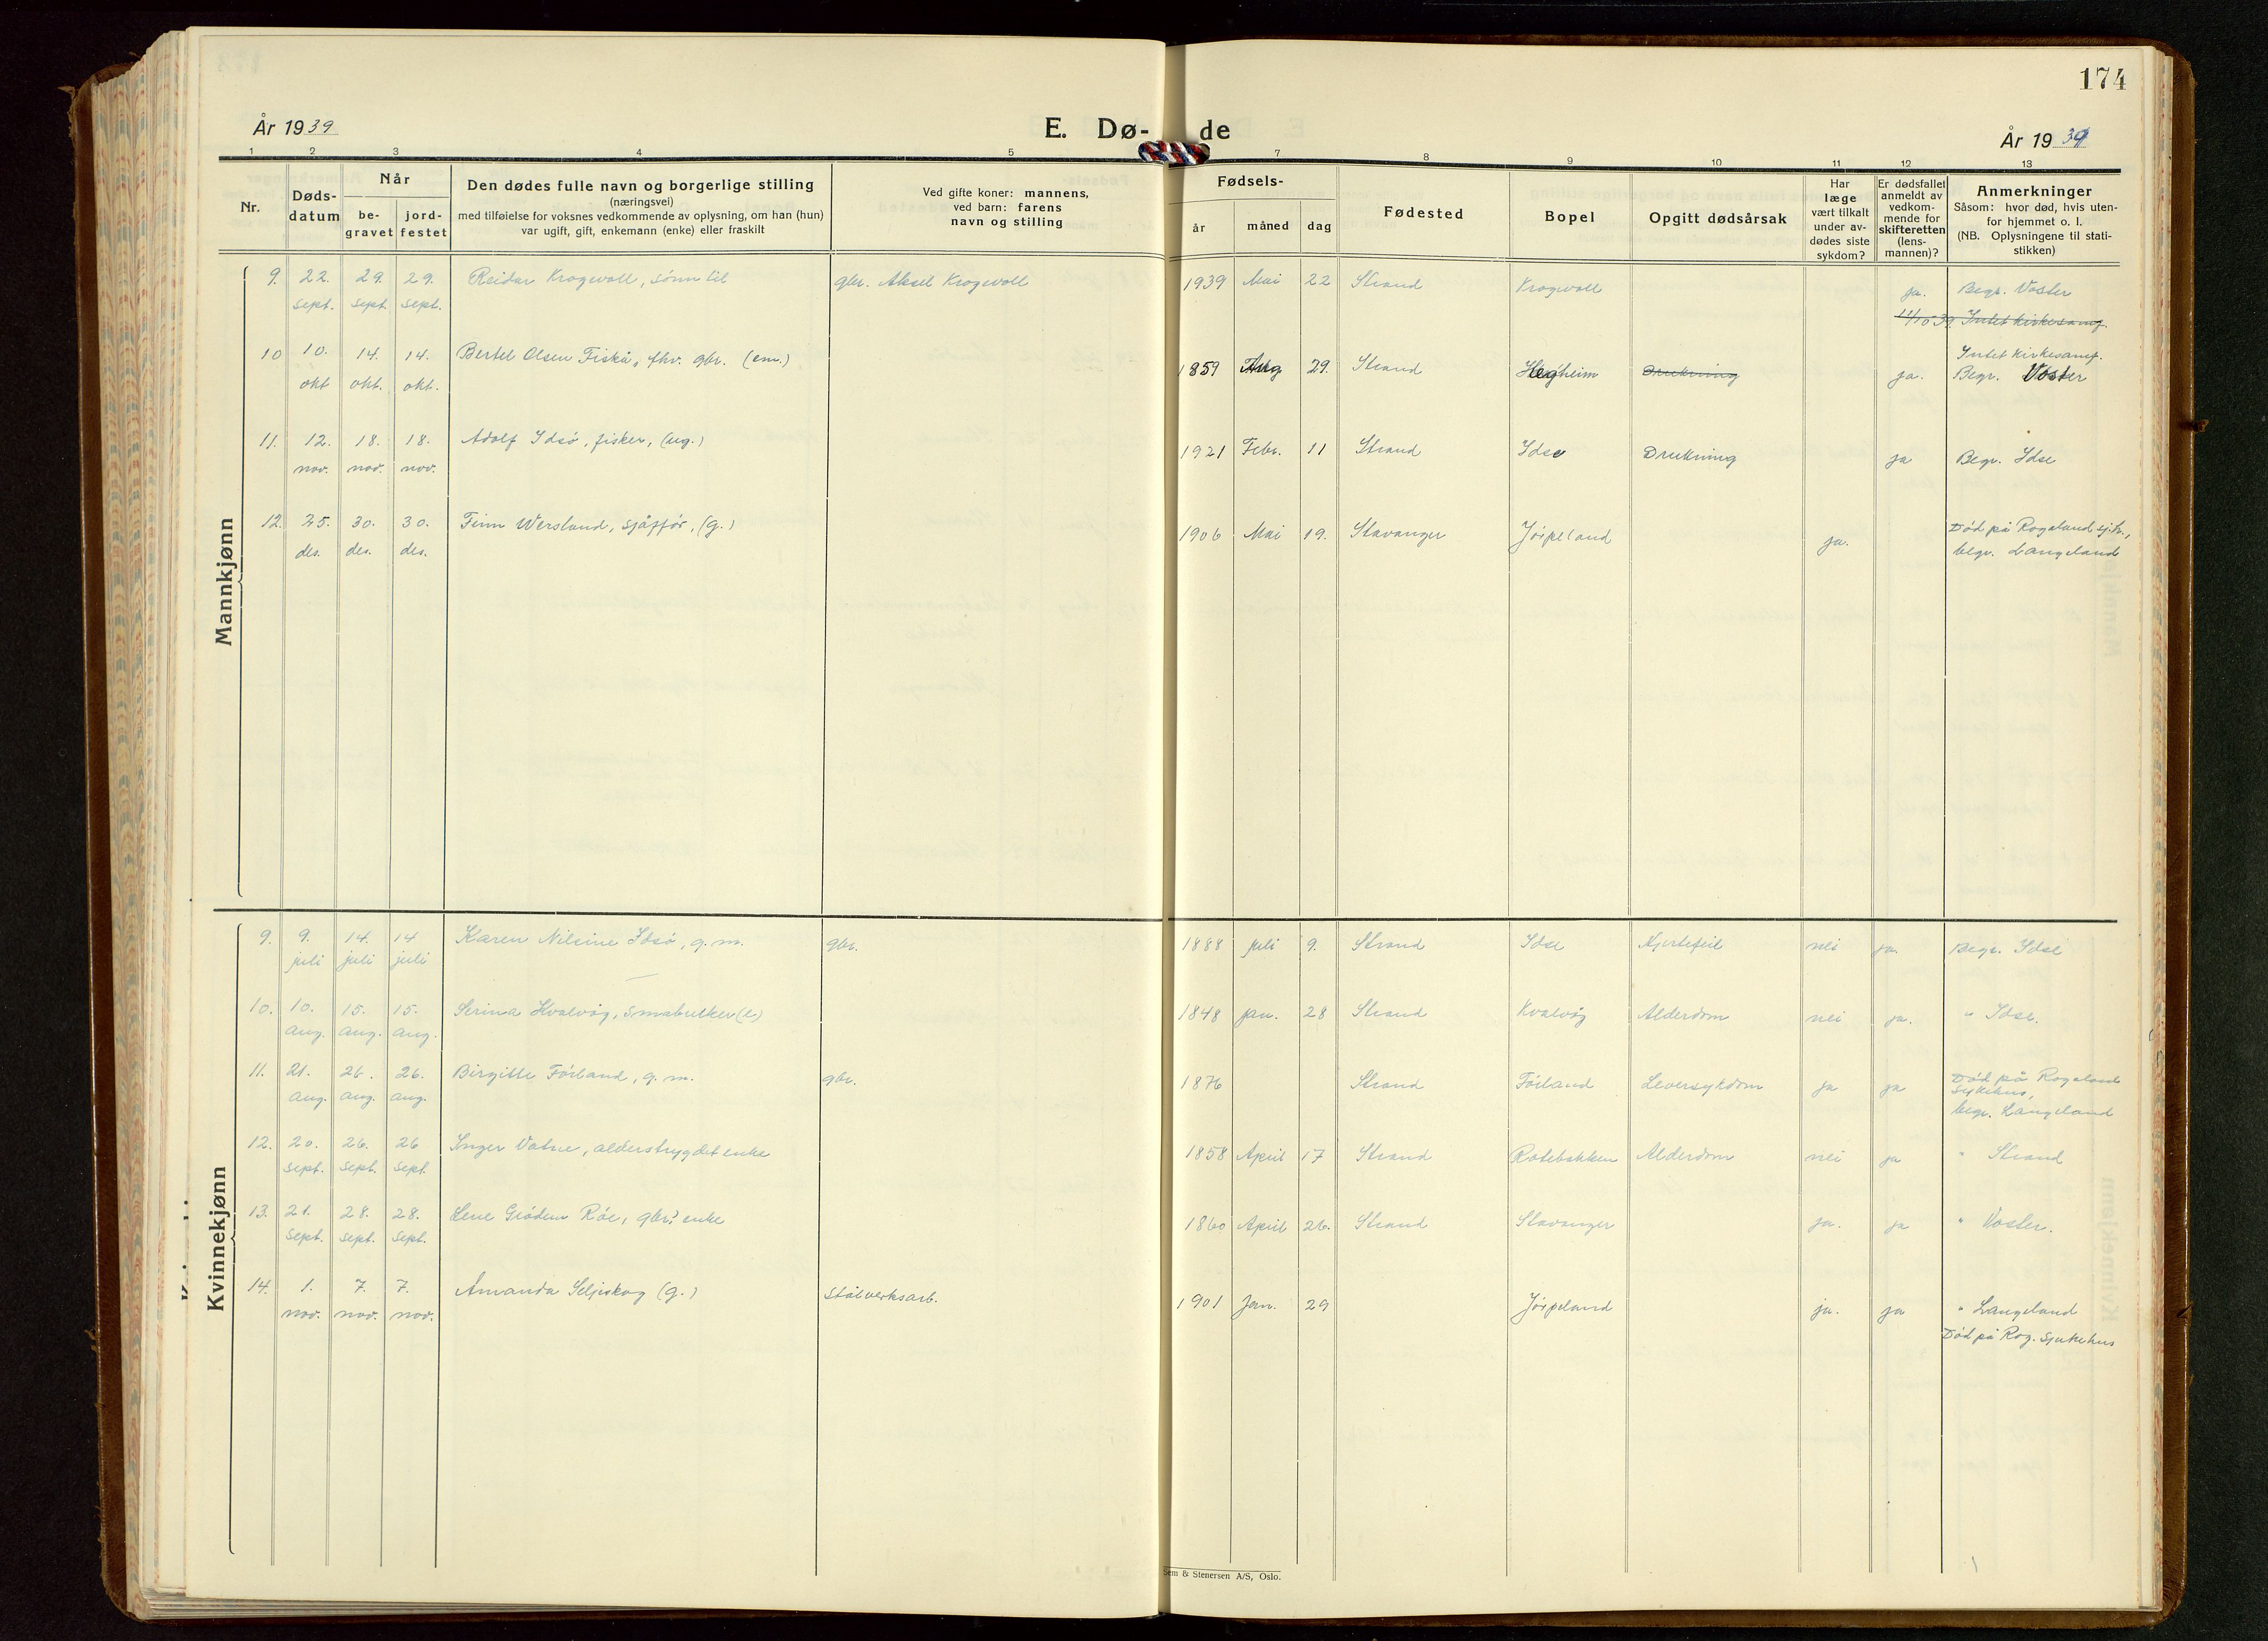 174
År 1939
E. Dø-de
År 1939
1 2 3 4 5 7 8 9 10 11 12 13
Nr.
Døds-datum
Når
be-gravet
jord-festet
Den dødes fulle navn og borgerlige stilling
(næringsvei)
med tilføielse for voksnes vedkommende av oplysning, om han (hun)
var ugift, gift, enkemann (enke) eller fraskilt
Ved gifte koner: mannens,
ved barn: farens
navn og stilling
Fødsels-
år måned dag
Fødested
Bopel
Opgitt dødsårsak
Har
læge
vært tilkalt
under av-
dødes siste
sykdom?
Er dødsfallet
anmeldt av
vedkom-
mende for
skifteretten
(lens-
mannen)?
Anmerkninger
Såsom: hvor død, hvis uten-
for hjemmet o. l.
(NB. Oplysningene til stati-
stikken)
Mannkjønn
9. 22. sept. 29. sept. 29. sept. Reidar Krogevoll, sønn til gbr. Aksel Krogevoll 1939 Mai 22 Strand Krogevoll ja. Begr. Voster
11/10 39. Intet kirkesamf.
Intet kirkesamf.
10 10. okt 14. okt. 14. okt. Bertel Olsen Fiskå, fhv. gbr. (em.) 1859 Aug 29. Strand Hegheim Drukning ja. Begr. Voster
11. 12. nov. 18. nov. 18. nov. Adolf Idsö, fisker, (ug.) 1921 Febr. 11 Strand Idse Drukning ja Begr. Idse
12. 25. des. 30. des. 30. des. Finn Wersland, sjåffør, (g.) 1906 Mai 19. Stavanger Jörpeland ja. Död på Rogaland sj.h.,
begr. Langeland
Kvinnekjønn
9. 9. juli 14. juli 14 juli Karen Nilsine Idsö, g. m. gbr. 1888 juli 9. Strand Idse Hjertefeil nei ja. Begr. Idse
10. 10. aug. 15. aug. 15. aug. Serina Kvalvåg, småbruker (e) 1848 jan. 28 Strand Kvalvåg Alderdom nei ja. " Idse.
11. 21. aug. 26. aug. 26. aug. Birgitte Förland, g. m. gbr. 1876 Strand Förland Leversykdom ja ja Död på Rogaland
sykehus,
begr. Langeland
12. 20. sept. 26. sept. 26 sept. Inger Vatne, alderstrygdet enke 1858 April 17 Strand Rotebakken Alderdom nei ja " Strand
13. 21. sept. 28. sept. 28. sept. Lene Grödem Röe, gbr? enke 1860 April 26. Strand Stavanger ja. ja " Voster.
14. 1. nov. 7. nov. 7. nov. Amanda Seljeskog (g.) Stålverksarb. 1901 Jan. 29 Jörpeland ja. ja " Langeland
Död på Rog. sjukehus
Sem & Stenersen A/S, Oslo.